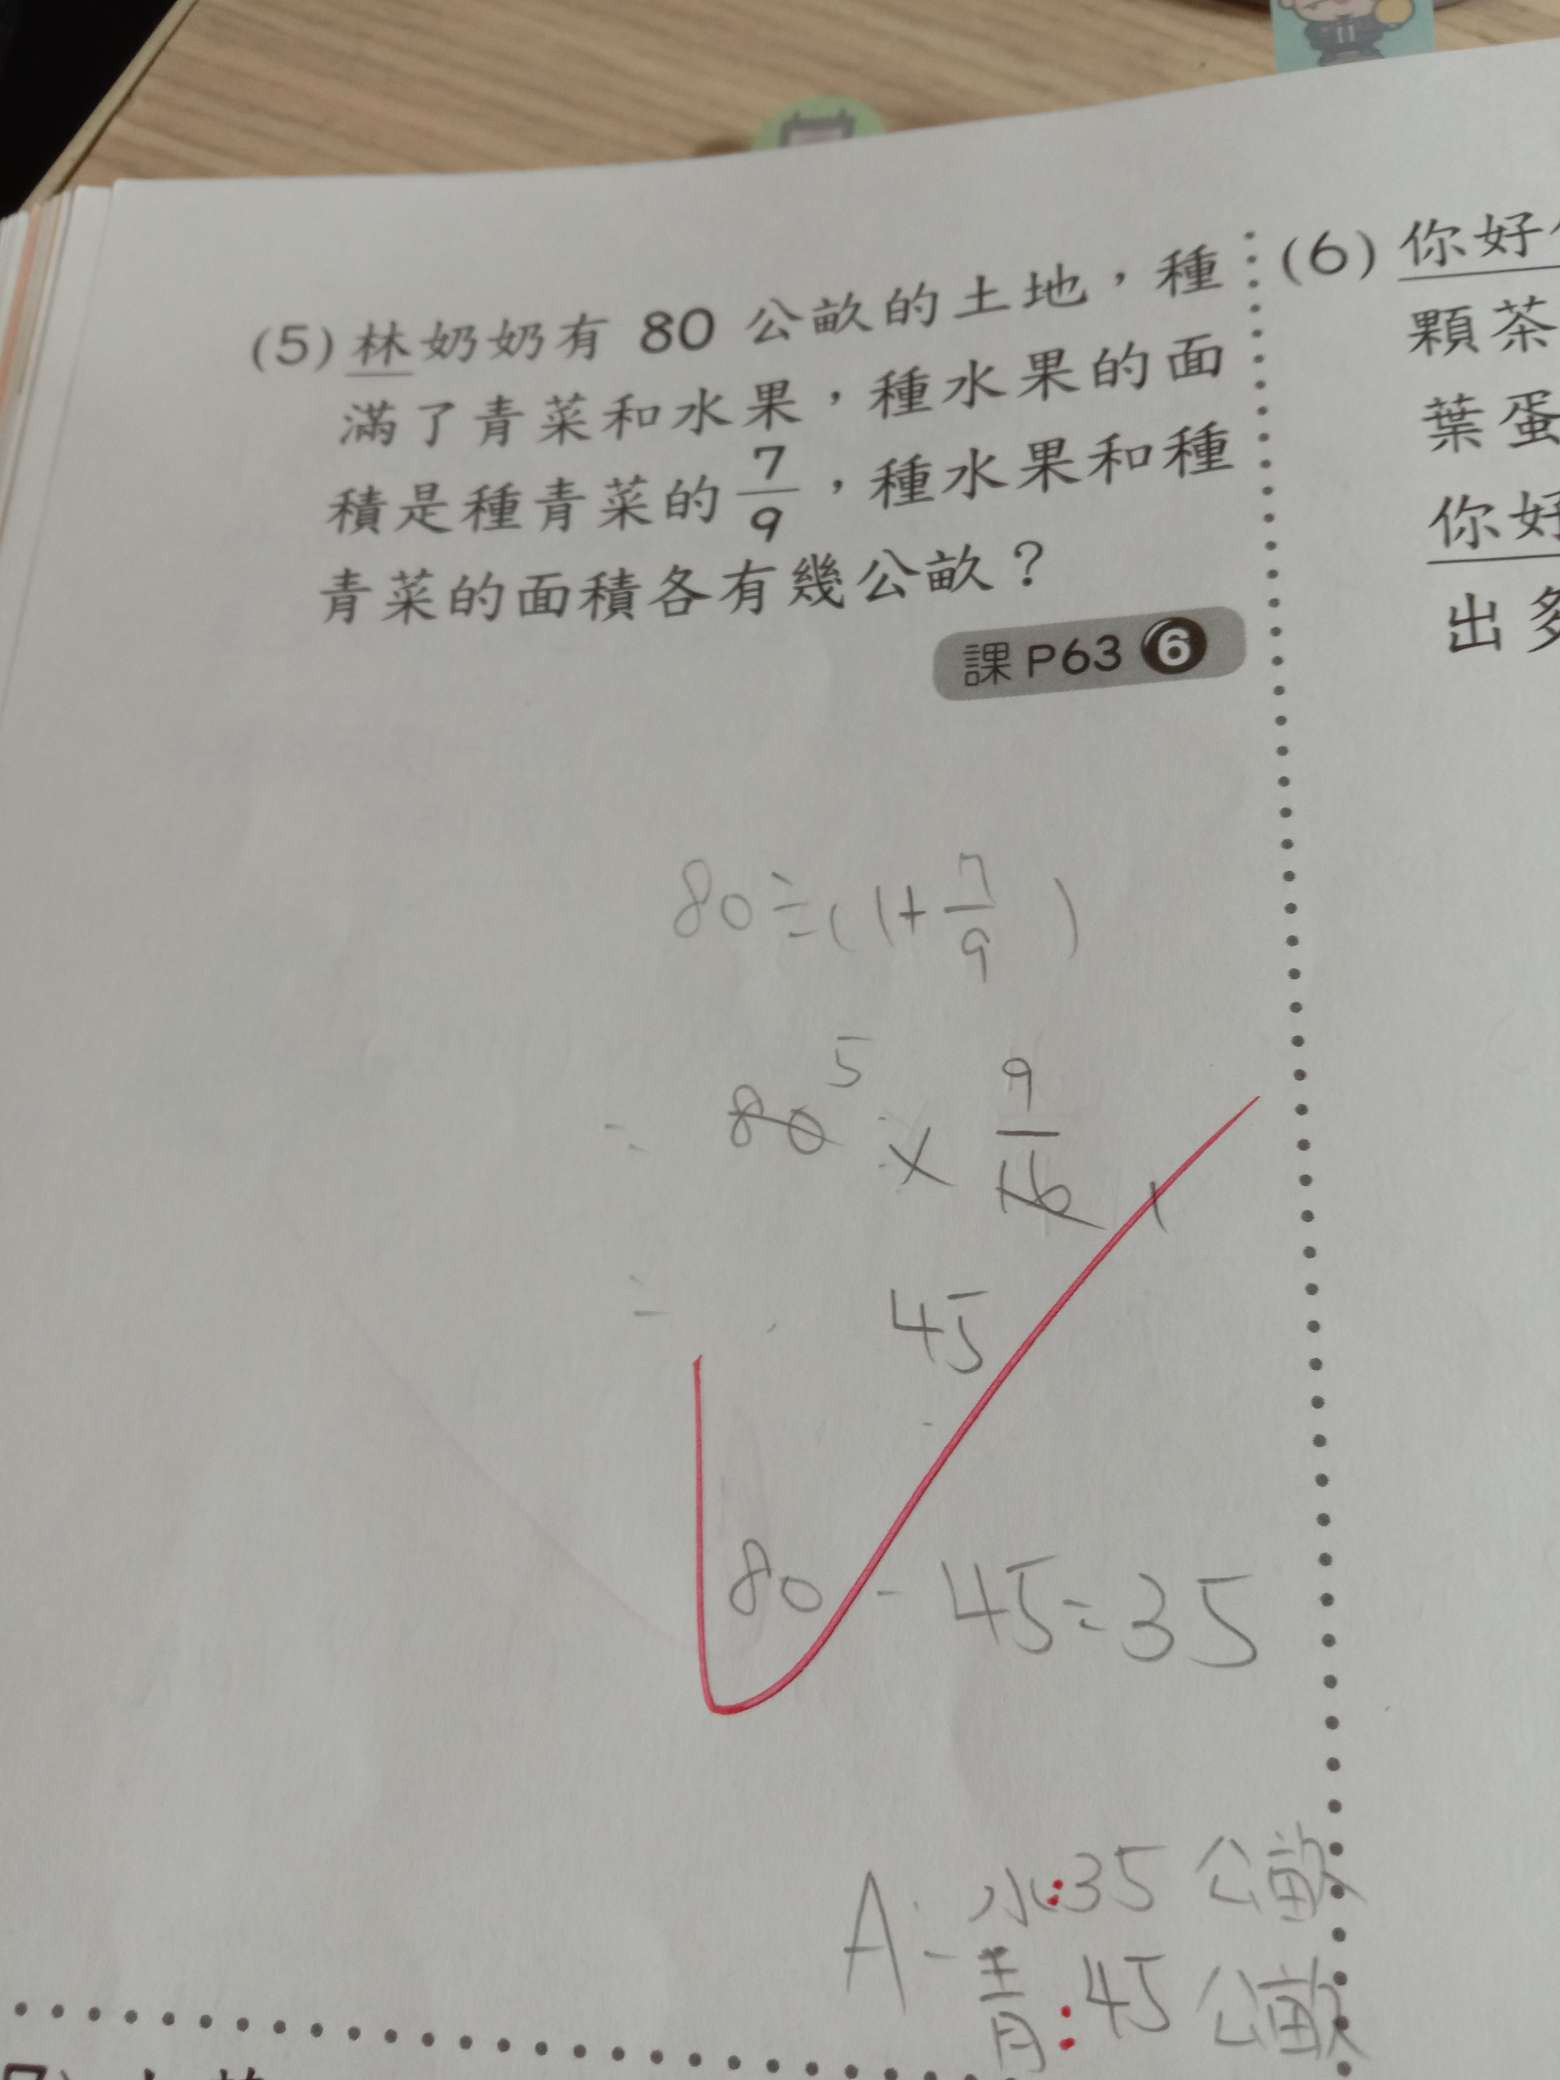 (5) 林奶奶有 80 公畝的土地，種
滿了青菜和水果，種水果的面
積是種青菜的 7/9，種水果和種
青菜的面積各有幾公畝？
課 P63 6
80÷(1+7/9)
= 80 5 × 9/16 1
= 45
80 - 45 = 35
A: 水:35 公畝
青:45 公畝
(6) 你好
顆茶
葉蛋
你好
出多